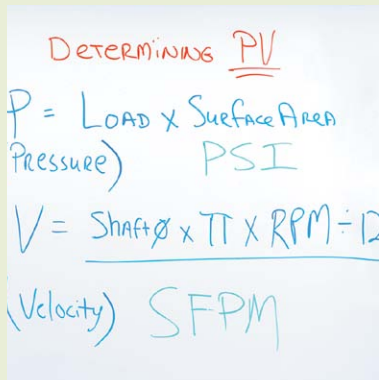 DETERMINING PV
P = LOAD x Surface AREA
Pressure) PSI
V = Shaft Ø x π x RPM ÷ 12
(Velocity) SFPM